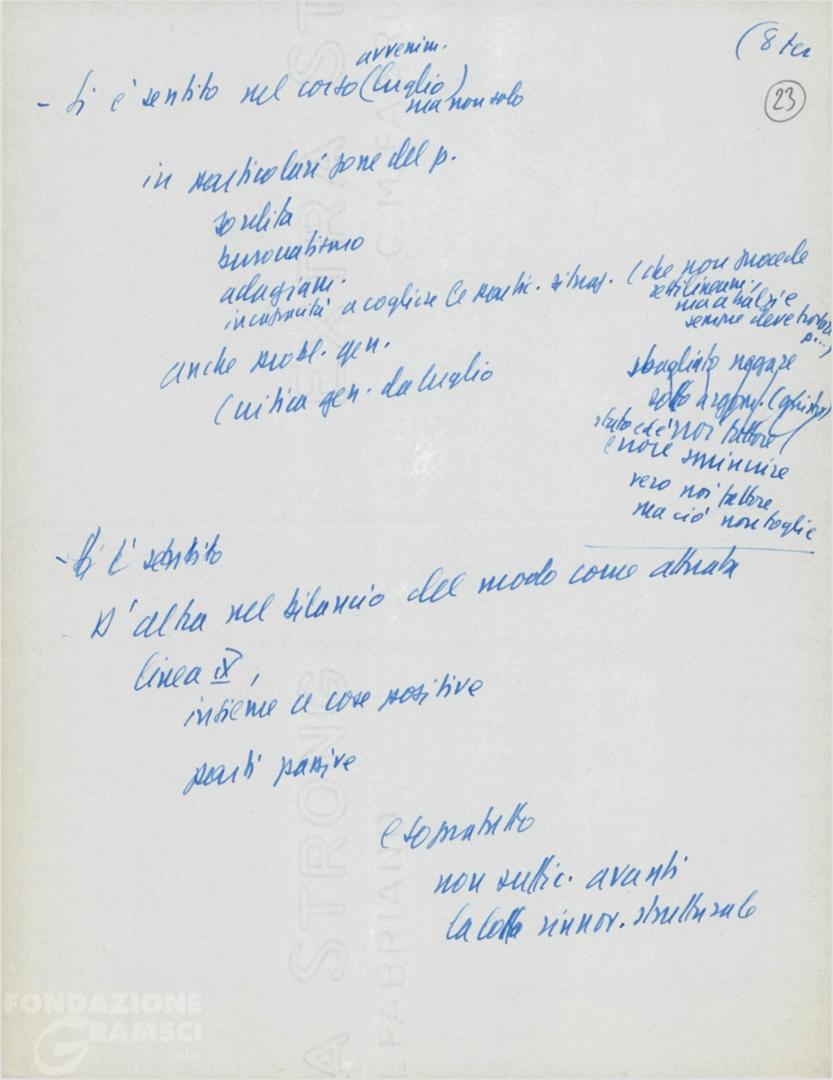 (8 ter
23
avvenim.
- Si è sentito nel corso (luglio)
ma non solo
in particolari zone del p.
sordità
burocratismo
adagiam.
incapacità a cogliere le partic. situaz. (che non procede
rettilineam.,
ma a balzi e
sempre deve
p...)
anche probl. gen.
(critica gen. da luglio
sbagliato negare
sotto argom. (giusto)
stato ed è noi fattore
e non sminuire
vero noi fattore
ma ciò non toglie
- Si è sentito
D'altra nel bilancio del modo come attuata
linea IX,
insieme a cose positive
parti passive
e sopratutto
non suffic. avanti
la lotta rinnov. strutturale
A STRONG
EXTRA ST
FABRIANO
C.M.FABRIA
FONDAZIONE
GRAMSCI